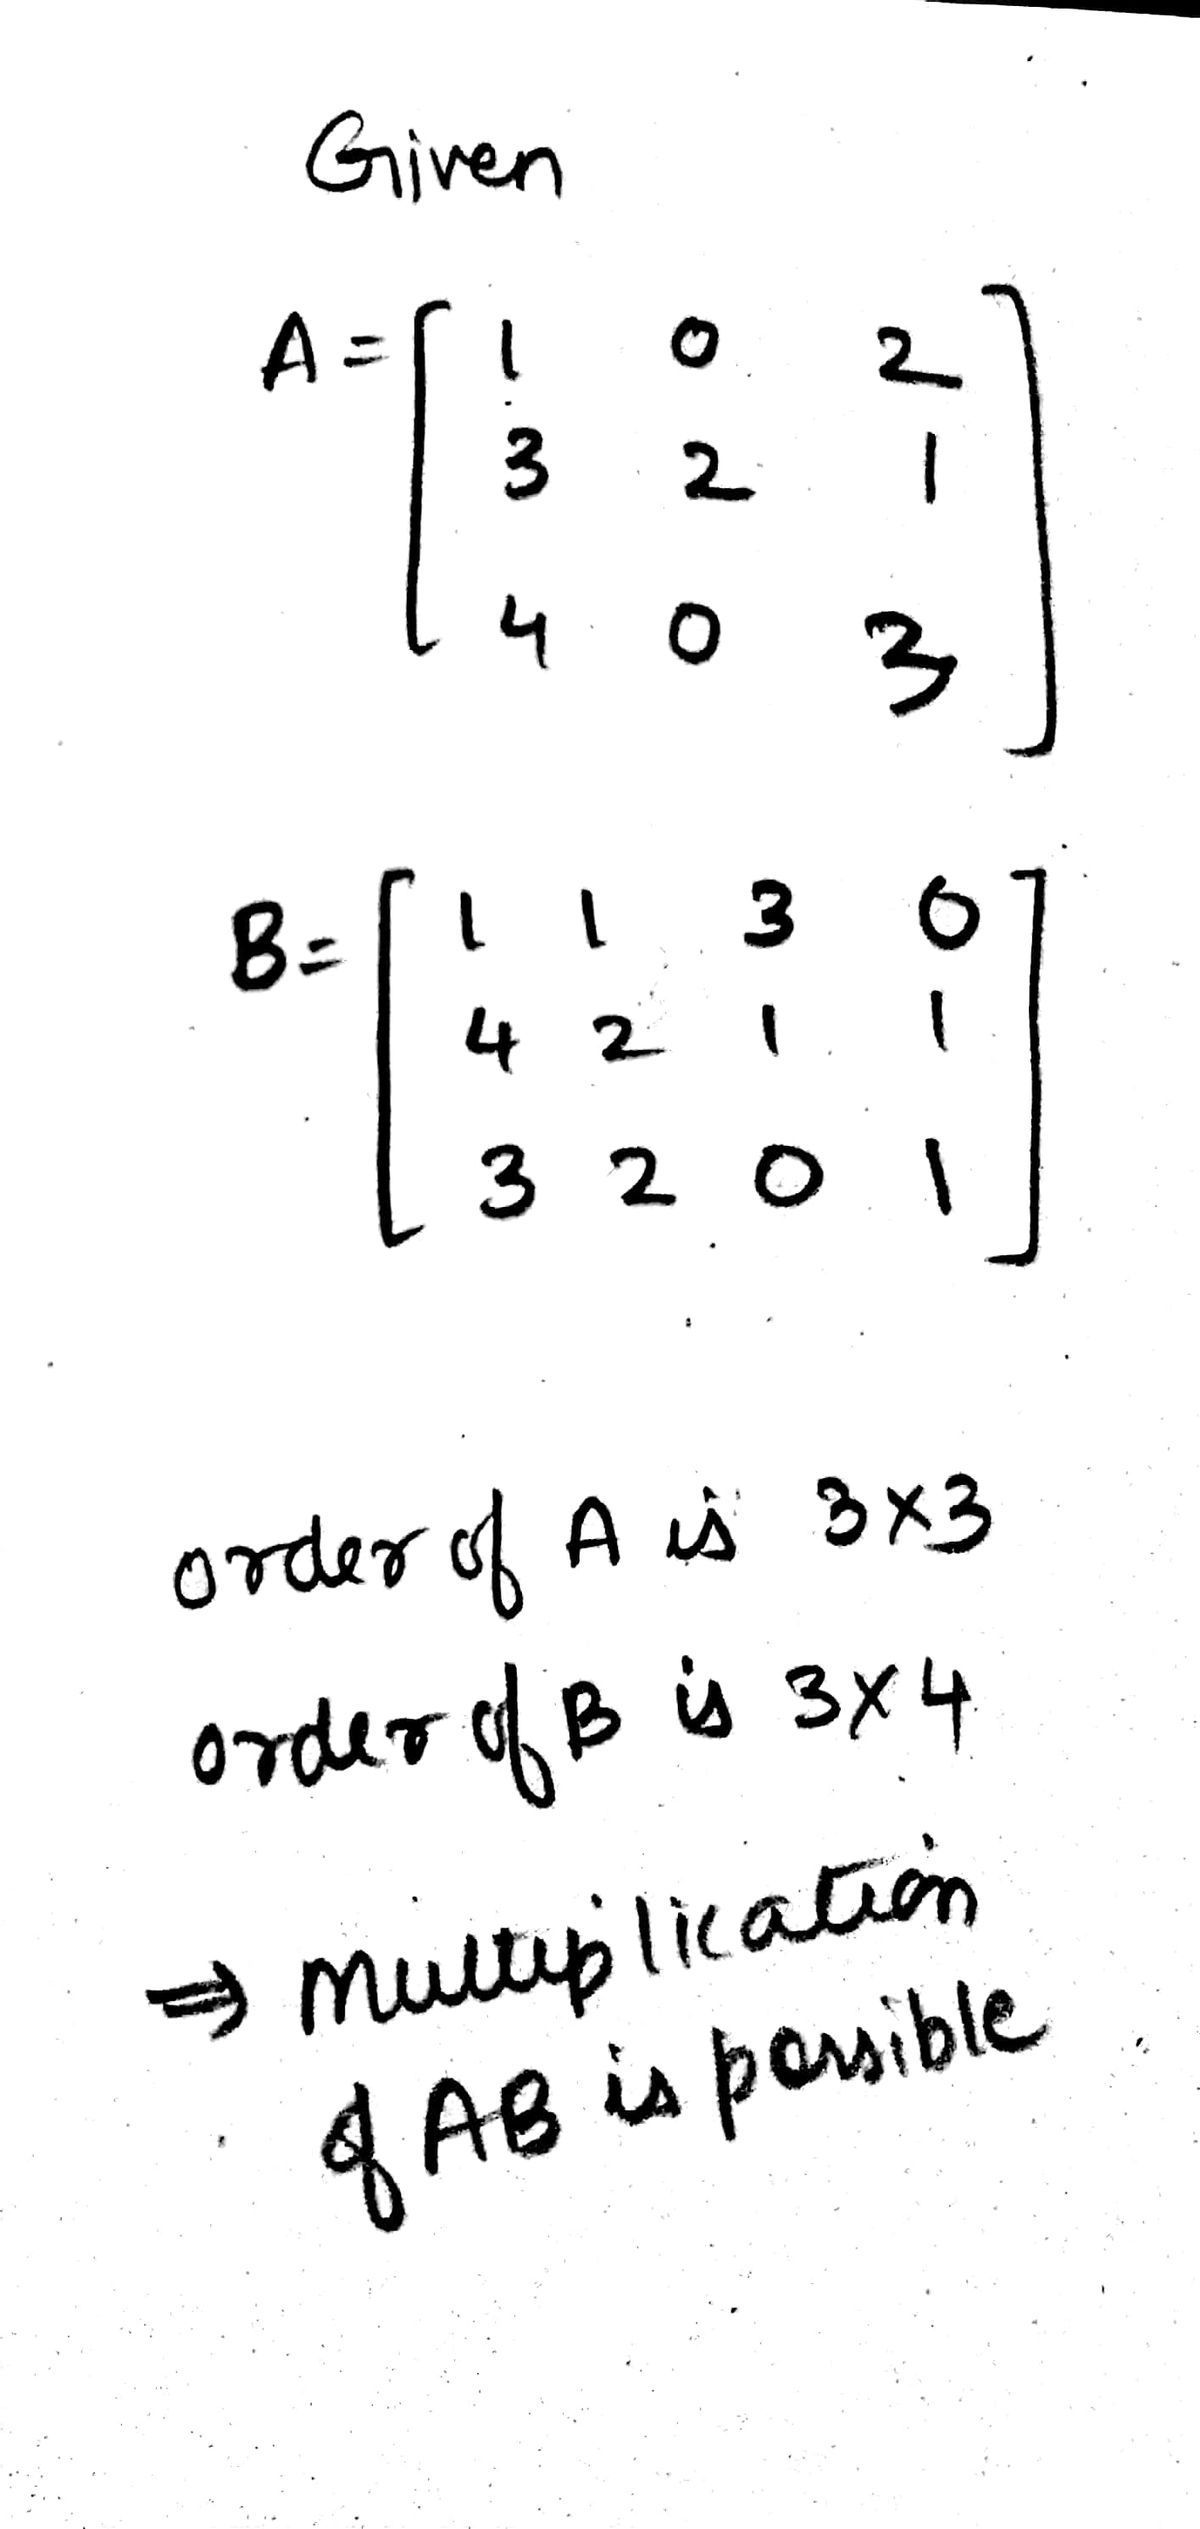 Given
A = [ 1 0 2
3 2 1
4 0 3 ]
B = [ 1 1 3 0
4 2 1 1
3 2 0 1 ]
order of A is 3×3
order of B is 3×4
⇒ Multiplication
of AB is possible